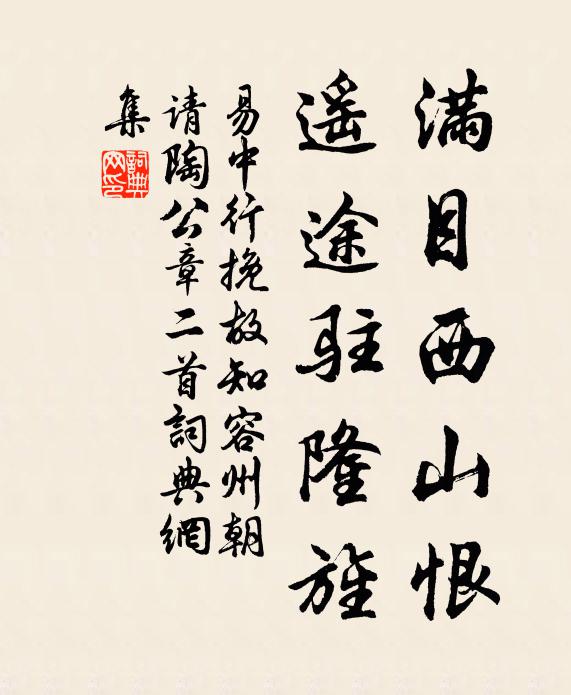 满目西山恨
遥途驻隆旌
易中行挽故知容州朝
请陶公章二首詞典網
集
詞典
网印